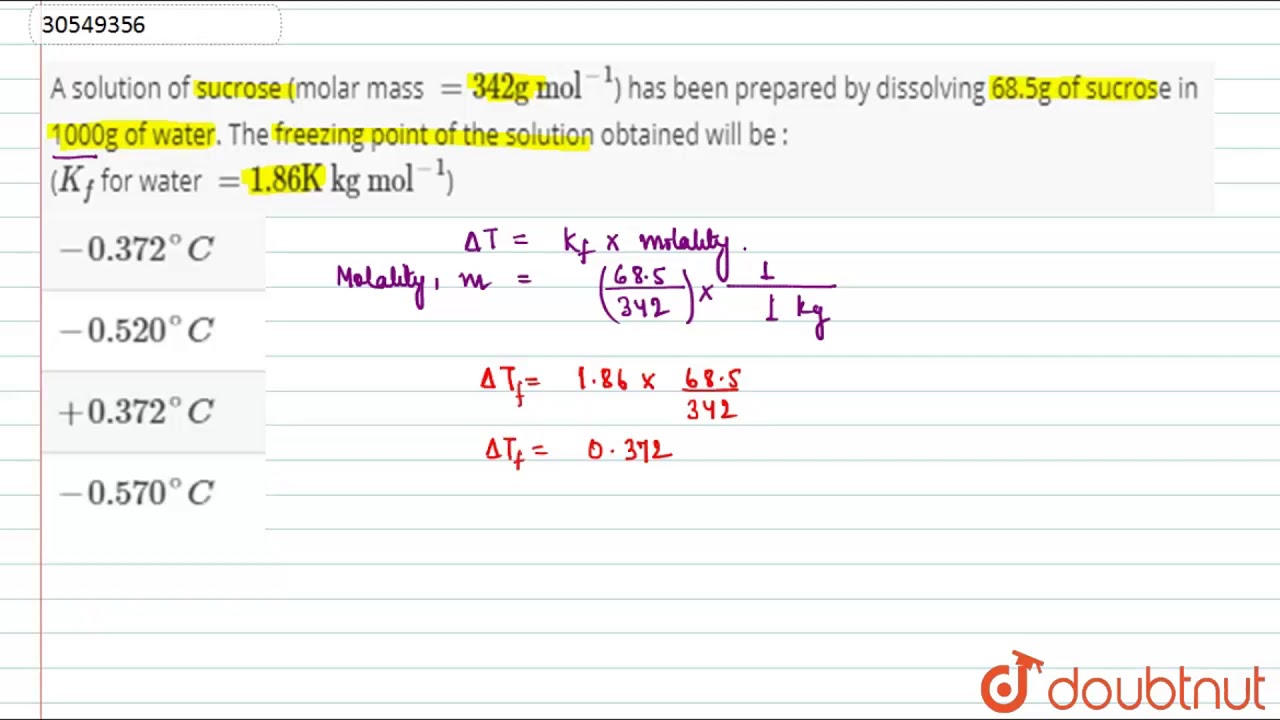 30549356
A solution of sucrose (molar mass = 342g mol⁻¹) has been prepared by dissolving 68.5g of sucrose in
1000g of water. The freezing point of the solution obtained will be :
(K_f for water = 1.86K kg mol⁻¹)
−0.372°C
−0.520°C
+0.372°C
−0.570°C
ΔT = K_f × molality.
Molality, m = (68.5/342) × 1/1 kg
ΔT_f = 1.86 × 68.5/342
ΔT_f = 0.372
doubtnut